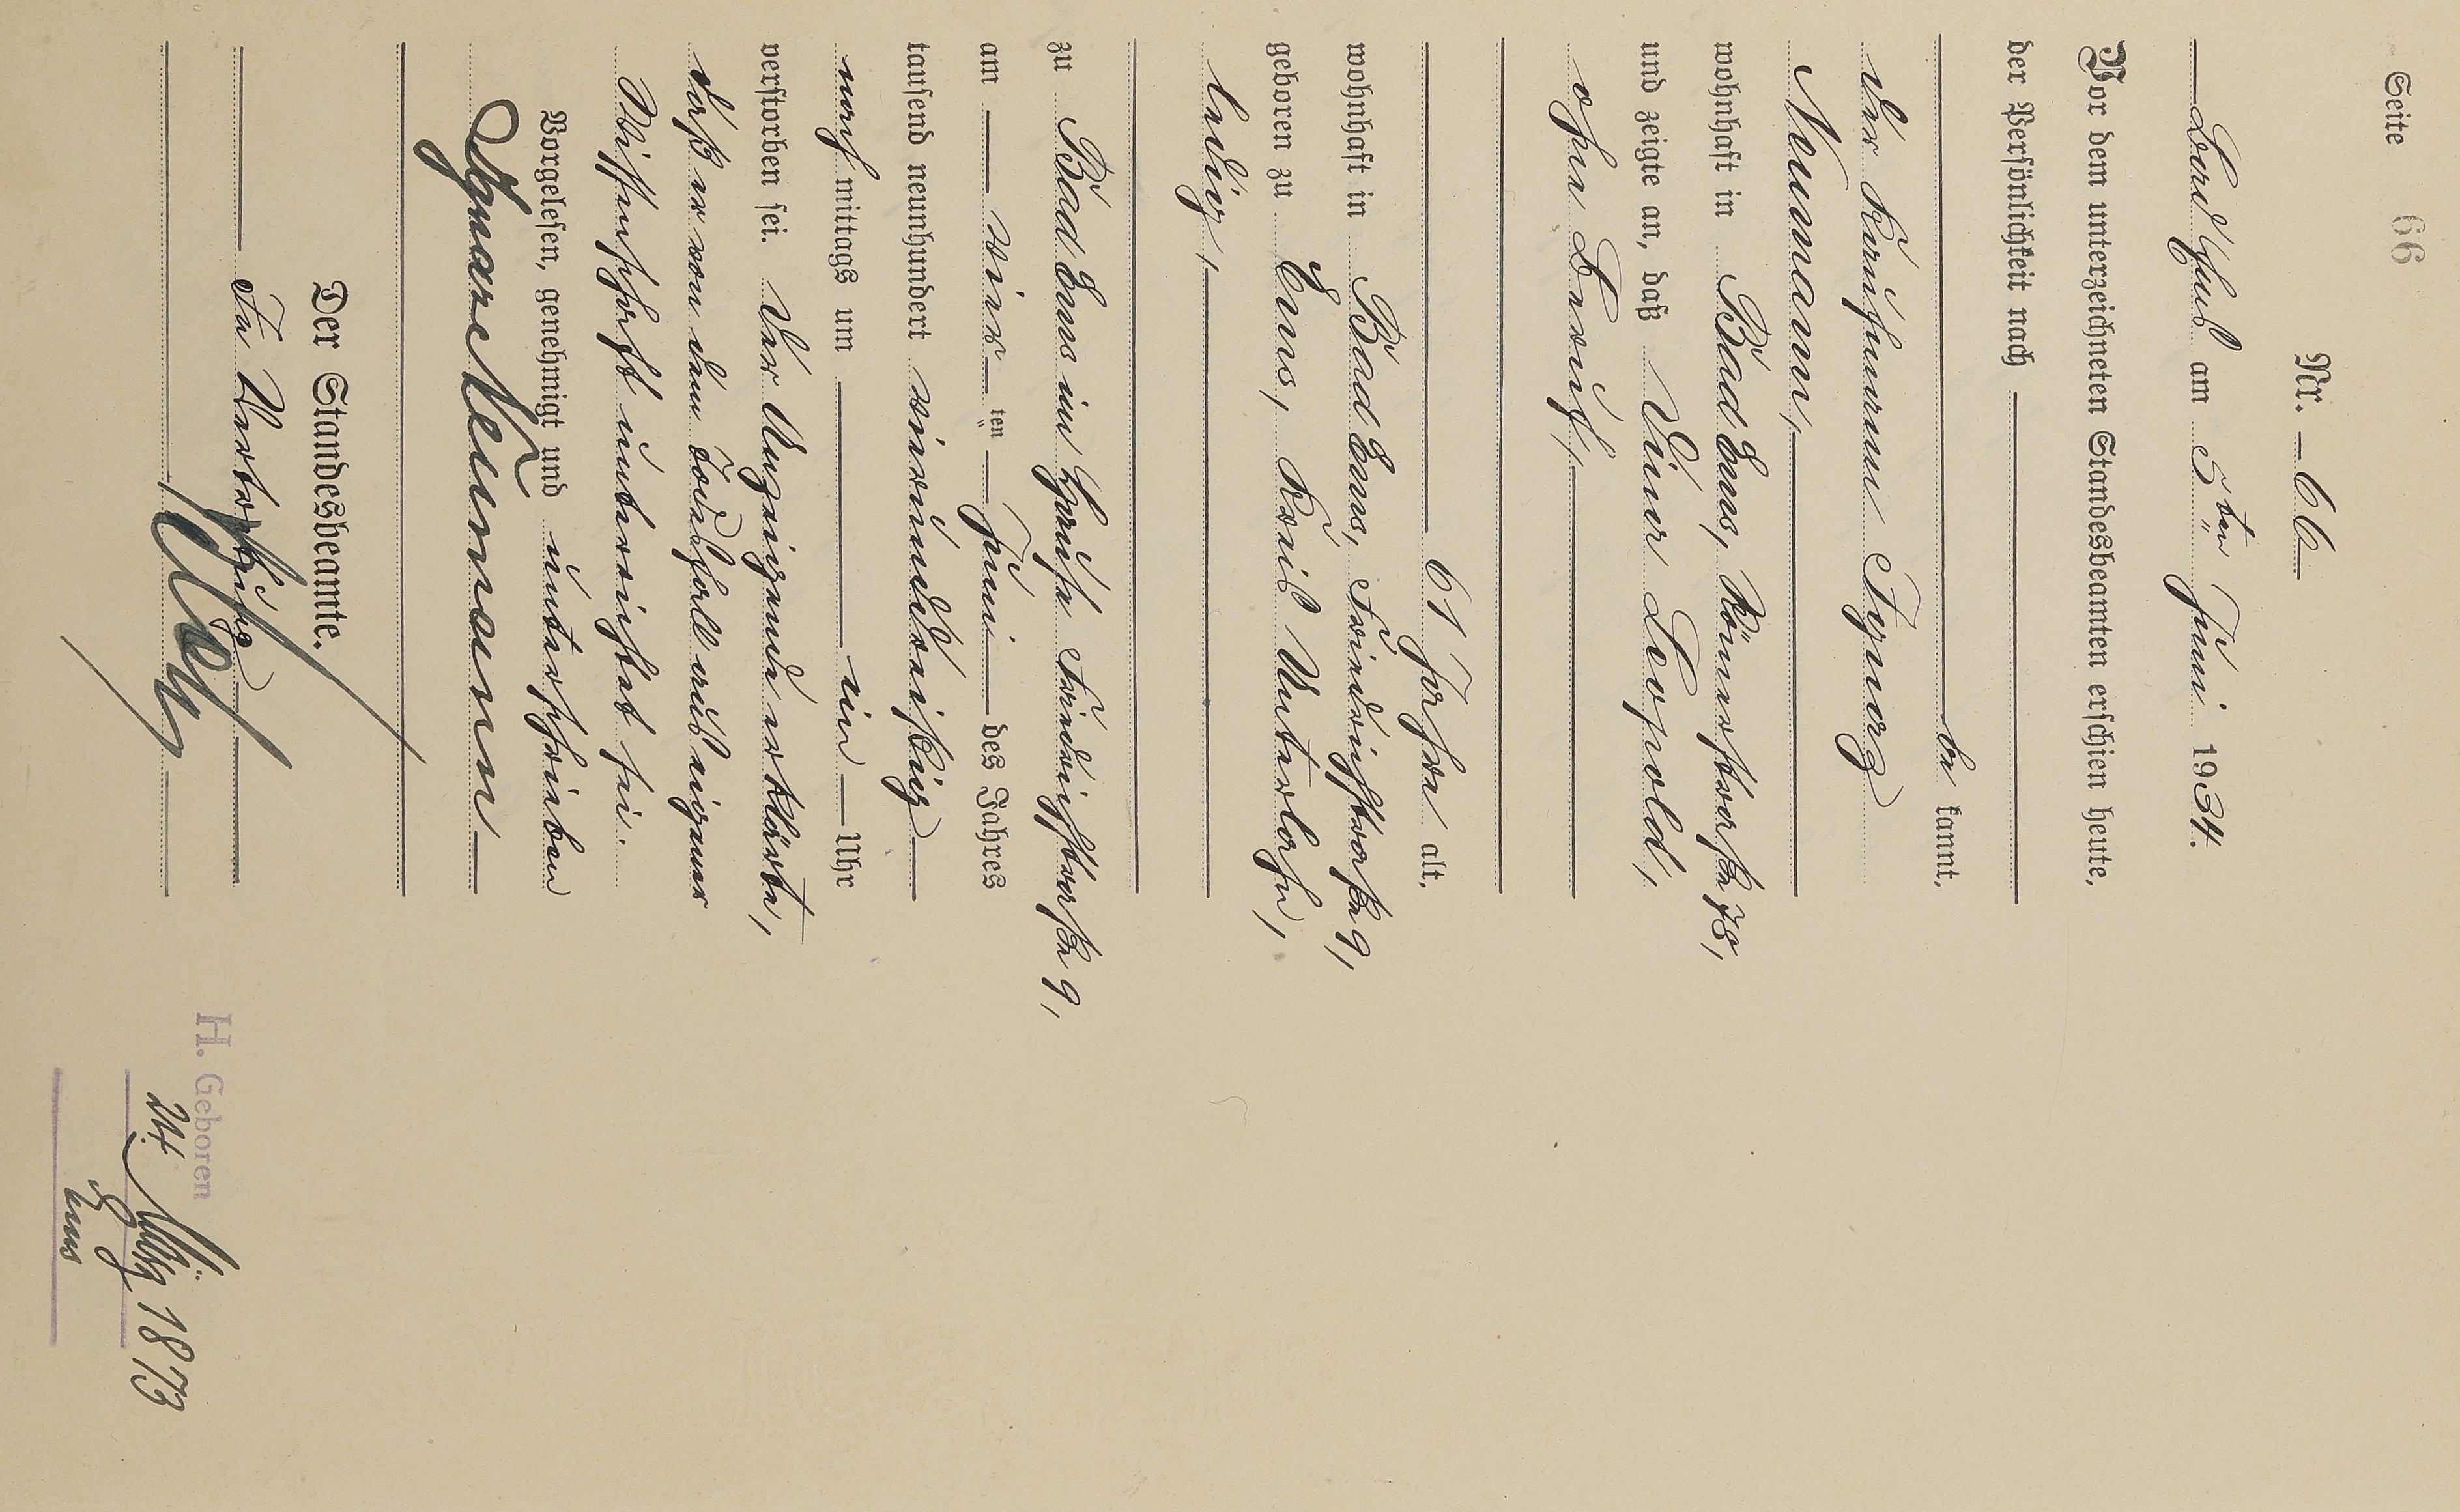 Seite 66
Nr. 66
Bad Ems am 5ten Juni 1934.
Vor dem unterzeichneten Standesbeamten erschien heute,
der Persönlichkeit nach
be kannt,
der Kaufmann Ignaz
Neumann,
wohnhaft in Bad Ems, Römerstraße 78,
und zeigte an, daß Leopold,
ohne Beruf,
61 Jahre alt,
wohnhaft in Bad Ems, Friedrichstraße 9,
geboren zu Ems, Kreis Unterlahn,
ledig,
zu Bad Ems im Hause Friedrichstraße 9,
am vier ten Juni des Jahres
tausend neunhundert vierunddreißig
nach mittags um ein Uhr
verstorben sei. Der Anzeigende erklärte,
daß er von dem Todesfall aus eigener
Wissenschaft unterrichtet sei.
Vorgelesen, genehmigt und unterschrieben
Ignaz Neumann
Der Standesbeamte.
In Vertretung
H. Geboren
24. 1873
Ems